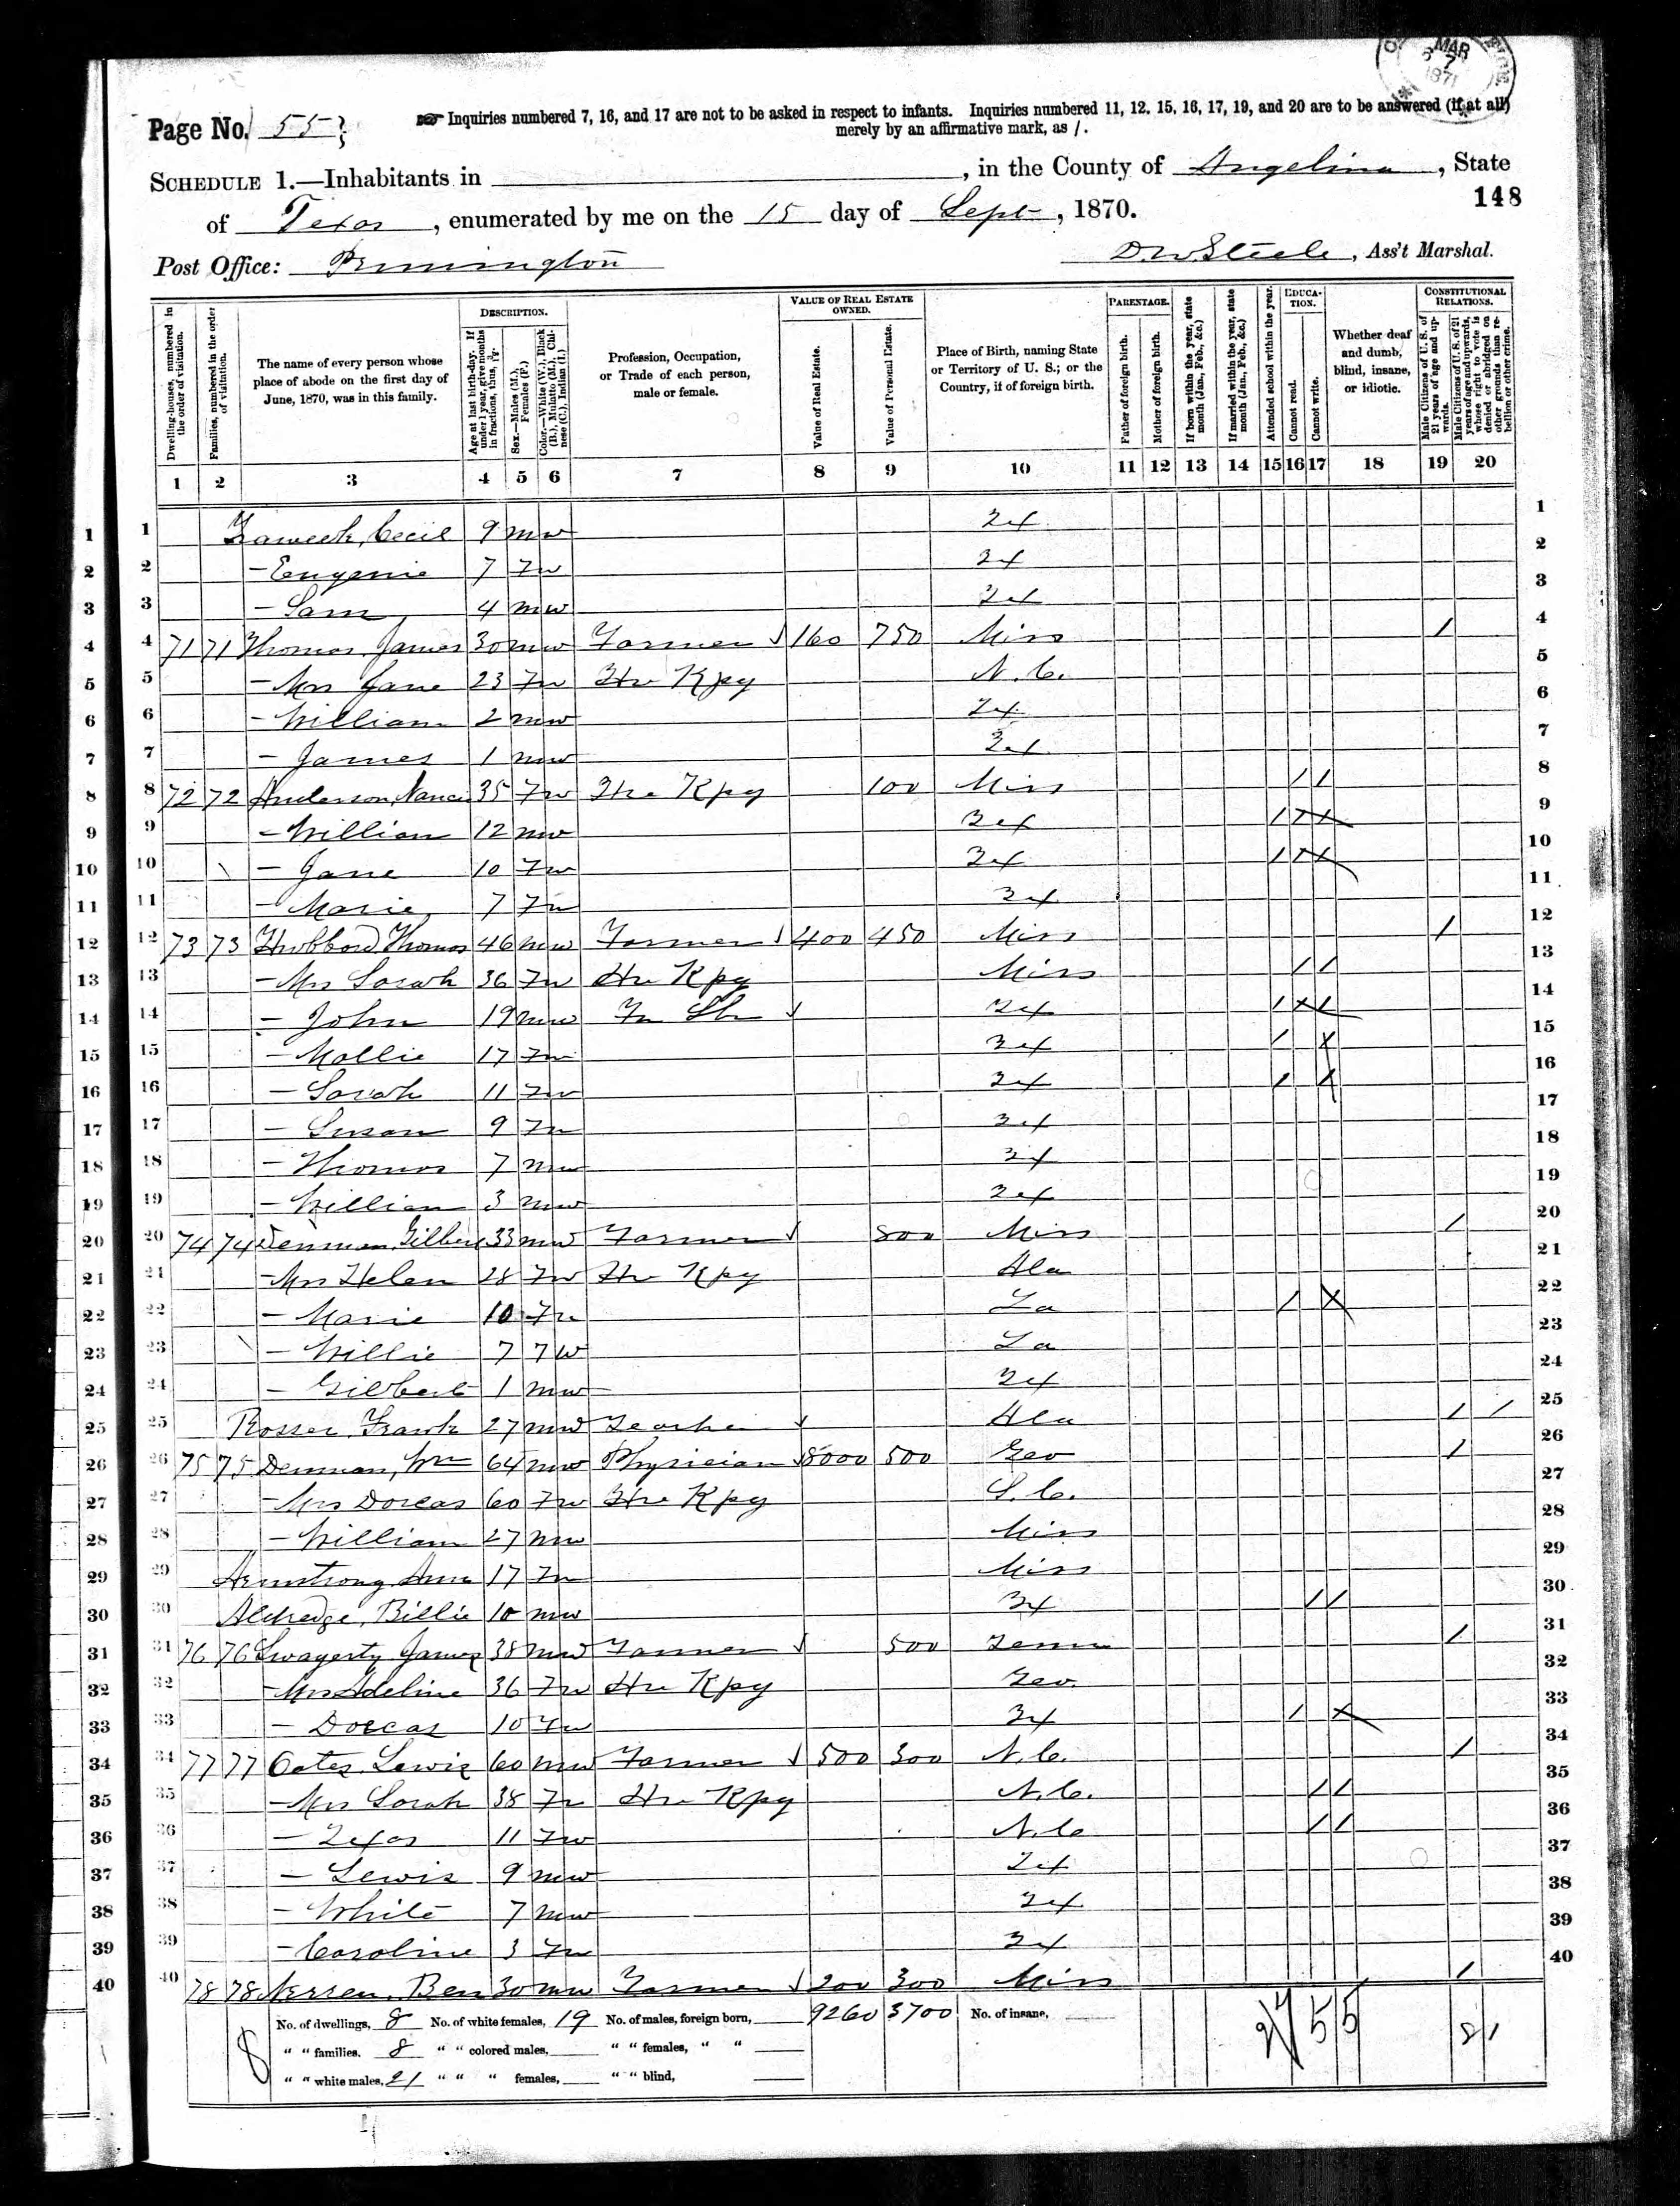 MAR 7 1871
Page No. 55
Inquiries numbered 7, 16, and 17 are not to be asked in respect to infants. Inquiries numbered 11, 12, 15, 16, 17, 19, and 20 are to be answered (if at all)
merely by an affirmative mark, as /.
SCHEDULE 1.—Inhabitants in , in the County of Angelina, State
148
of Texas, enumerated by me on the 15 day of Sept, 1870.
Post Office: Pennington D.W. Steele, Ass't Marshal.
Dwelling-houses, numbered in the order of visitation.
Families, numbered in the order of visitation.
The name of every person whose place of abode on the first day of June, 1870, was in this family.
DESCRIPTION.
Age at last birth-day. If under 1 year, give months in fractions, thus, 3/12.
Sex.—Males (M.), Females (F.)
Color.—White (W.), Black (B.), Mulatto (M.), Chinese (C.), Indian (I.)
Profession, Occupation, or Trade of each person, male or female.
VALUE OF REAL ESTATE OWNED.
Value of Real Estate.
Value of Personal Estate.
Place of Birth, naming State or Territory of U. S.; or the Country, if of foreign birth.
PARENTAGE.
Father of foreign birth.
Mother of foreign birth.
If born within the year, state month (Jan., Feb., &c.)
If married within the year, state month (Jan., Feb., &c.)
EDUCATION.
Attended school within the year.
Cannot read.
Cannot write.
Whether deaf and dumb, blind, insane, or idiotic.
CONSTITUTIONAL RELATIONS.
Male Citizens of U. S. of 21 years of age and upwards.
Male Citizens of U. S. of 21 years of age and upwards, whose right to vote is denied or abridged on other grounds than rebellion or other crime.
1 2 3 4 5 6 7 8 9 10 11 12 13 14 15 16 17 18 19 20
1 1 Cecil 9 m w Tex 1
2 2 — Eugenie 7 F w Tex 2
3 3 — Sam 4 m w Tex 3
4 4 71 71 Thomas, James 30 m w Farmer 160 750 Miss / 4
5 5 — Mrs Jane 23 F w Hs Kpg N.C. 5
6 6 — William 2 m w Tex 6
7 7 — James 1 m w Tex 7
8 8 72 72 Anderson, Nancy 35 F w Hs Kpg 100 Miss / / 8
9 9 — William 12 m w Tex / 9
10 10 — Jane 10 F w Tex / 10
11 11 — Marie 7 F w Tex 11
12 12 73 73 Hubbard, Thomas 46 m w Farmer 400 450 Miss / 12
13 13 — Mrs Sarah 36 F w Hs Kpg Miss / / 13
14 14 — John 19 m w Tex / 14
15 15 — Mollie 17 F w Tex / X 15
16 16 — Sarah 11 F w Tex / X 16
17 17 — Susan 9 F w Tex 17
18 18 — Thomas 7 m w Tex 18
19 19 — William 3 m w Tex 19
20 20 74 74 Denman, Gilbert 33 m w Farmer 800 Miss / 20
21 21 — Mrs Helen 28 F w Hs Kpg Ala 21
22 22 — Marie 10 F w La / X 22
23 23 — Willie 7 F w La 23
24 24 — Gilbert 1 m w Tex 24
25 25 Rosser, Frank 27 m w Teacher Ala / / 25
26 26 75 75 Denman, Wm 64 m w Physician 8000 500 Geo / 26
27 27 — Mrs Dorcas 60 F w Hs Kpg S.C. 27
28 28 — William 27 m w Miss 28
29 29 Armstrong, 17 F w Miss 29
30 30 Billie 10 m w Tex / / 30
31 31 76 76 Swagerty, James 38 m w Farmer 500 Tenn / 31
32 32 — Mrs Adeline 36 F w Hs Kpg Geo. 32
33 33 — Dorcas 10 F w Tex / X 33
34 34 77 77 Oates, Lewis 60 m w Farmer 500 300 N.C. / 34
35 35 — Mrs Sarah 38 F w Hs Kpg N.C. / / 35
36 36 — Texas 11 F w N.C / / 36
37 37 — Lewis 9 m w Tex 37
38 38 — White 7 m w Tex 38
39 39 — Caroline 3 F w Tex 39
40 40 78 78 Ben 30 m w Farmer 200 300 Miss / 40
No. of dwellings, 8 No. of white females, 19 No. of males, foreign born, 9260 3700 No. of insane,
" " families, 8 " " colored males, " " females, " "
" " white males, 21 " " " females, " " blind,
5 5 8 1